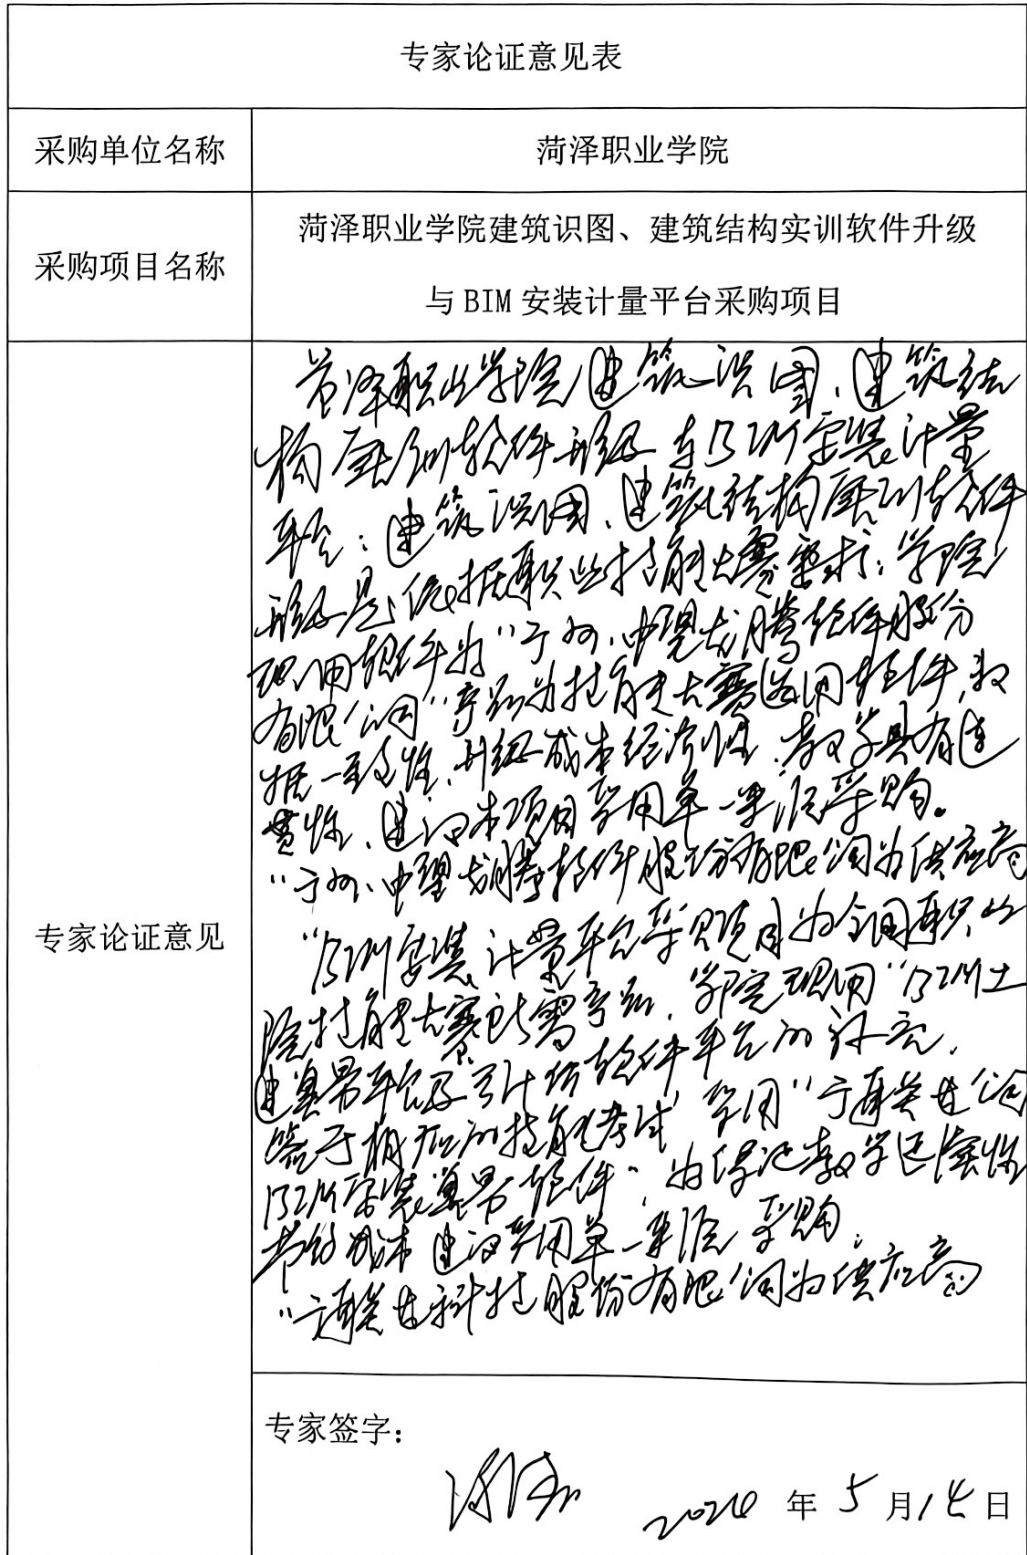 专家论证意见表
采购单位名称
菏泽职业学院
采购项目名称
菏泽职业学院建筑识图、建筑结构实训软件升级
与BIM安装计量平台采购项目
专家论证意见
菏泽职业学院建筑识图、建筑结
构实训软件升级与BIM安装计量
平台:建筑识图、建筑结构实训软件
升级是依据职业技能大赛要求;学院
现用软件为"广州中望龙腾软件股份
有限公司"产品为技能大赛选用软件,数
据一致性,升级成本经济性,教学具有连
贯性,建议本项目采用单一来源采购。
"广州中望龙腾软件股份有限公司为供应商
"BIM安装计量平台采购项目为全国职业
院技能大赛所需产品,学院现用"BIM土
建算量平台及计价软件平台的
鉴于相应的技能考试,采用"广联达公司
BIM安装算量软件",为保证教学连续性
节约成本建议采用单一来源采购。
"广联达科技股份有限公司为供应商
专家签字:
2024年5月14日